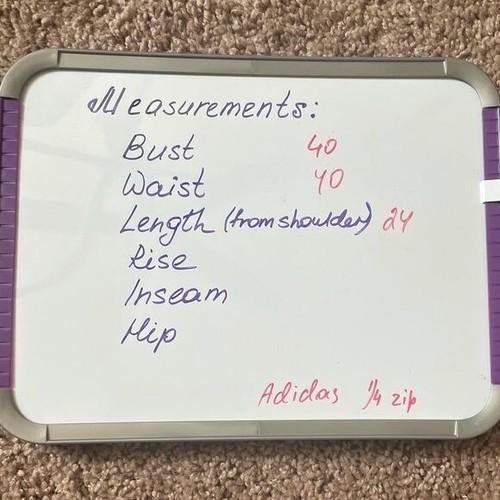 Measurements:
Bust 40
Waist 40
Length (from shoulder) 24
Rise
Inseam
Hip
Adidas 1/4 zip